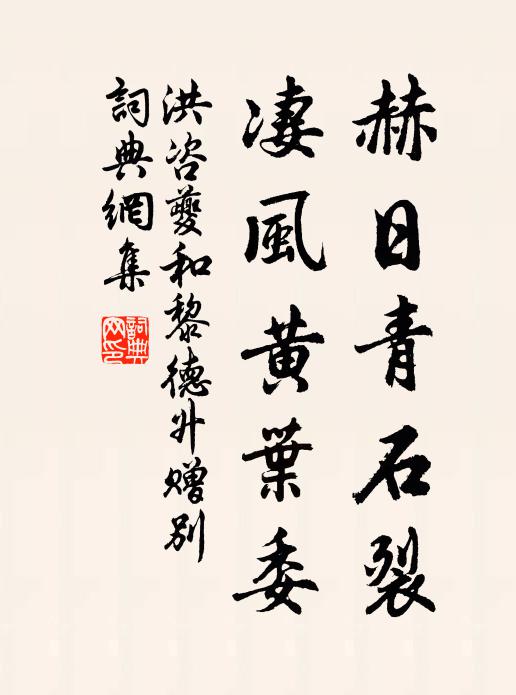 赫日青石裂
凄風黃葉委
洪咨夔和黎德升贈別
詞典網集
詞典網印